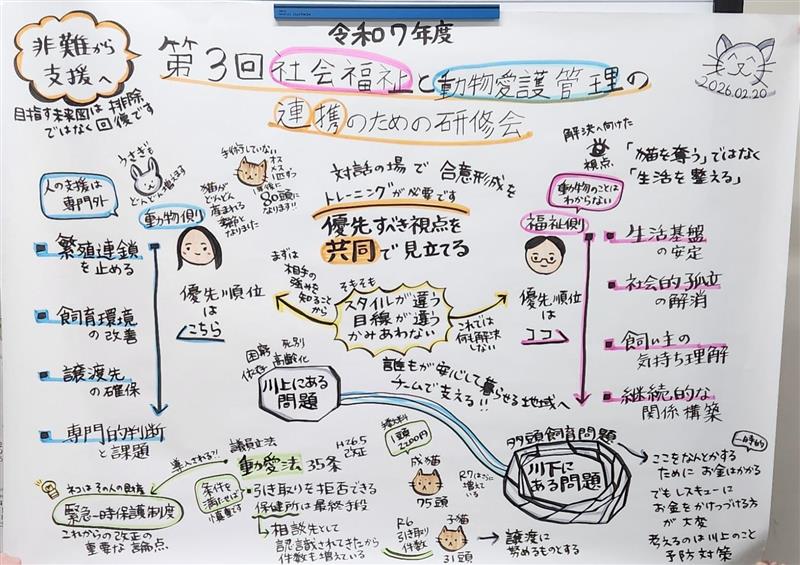 令和7年度
第3回社会福祉と動物愛護管理の
連携のための研修会
2026.02.20
非難から
支援へ
目指す未来図は排除
ではなく回復です
人の支援は
専門外
うさぎも
どんどん増えます
動物側
猫が
どんどん
産まれる
季節と
なりました
手術していない
オス・メス1匹ずつ
80頭に
なります!!
対話の場で合意形成を
トレーニングが必要です
優先すべき視点を
共同で見立てる
解決へ向けた
視点
「猫を奪う」ではなく
「生活を整える」
動物のことは
わからない
福祉側
繁殖連鎖
を止める
飼育環境
の改善
譲渡先
の確保
専門的判断
と課題
優先順位
は
こちら
まずは
相手の
強みを
知ること
から
そもそも
スタイルが違う
目線が違う
かみあわない
これでは
何も解決
しない
優先順位
は
ココ
生活基盤
の安定
社会的孤立
の解消
飼い主の
気持ち理解
継続的な
関係構築
困窮
死別
依存
高齢化
川上にある
問題
誰もが安心して暮らせる地域へ
チームで支える!!
多頭飼育問題
川下に
ある問題
一時的
ここをなんとかする
ために お金はかかる
でもレスキューに
お金をかけつづける
方が大変
考えるのは川上のこと
予防対策
導入される?!
議員立法
動愛法 35条
H26.5
改正
引き取りを拒否できる
保健所は最終手段
相談先として
認識されてきたから
件数も増えている
条件を
満たせば
ネコはその人の財産
緊急一時保護制度
これからの改正の
重要な論点
1頭
2200円
成猫
75頭
R7はさらに
増えている
R6
引き取り
件数
子猫
31頭
譲渡に
努めるものとする